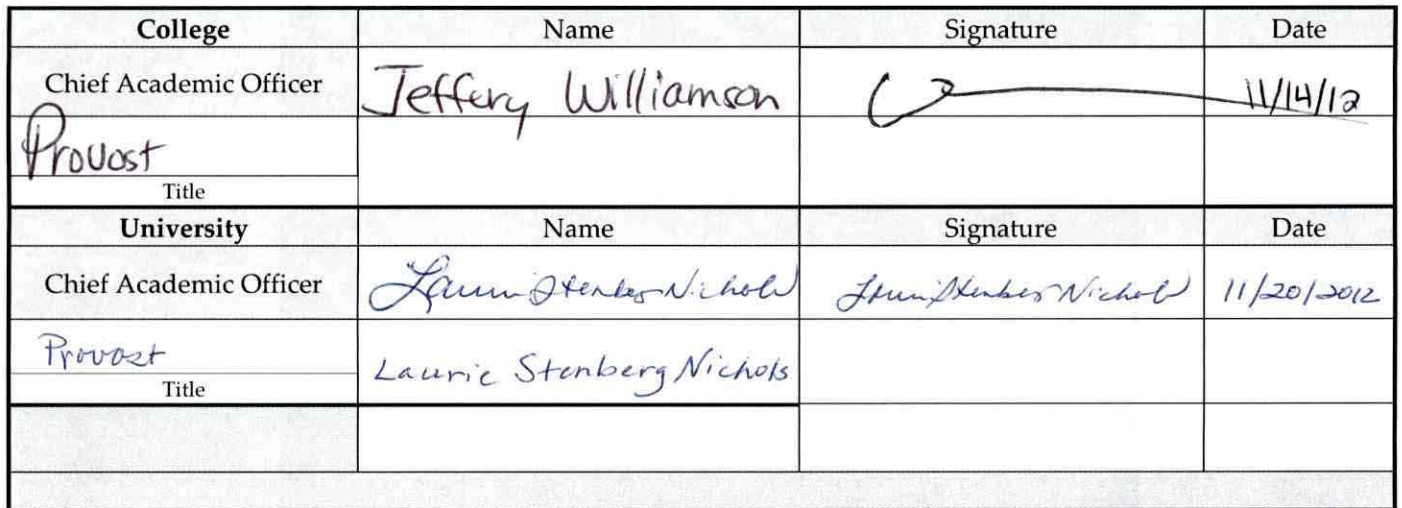 College Name Signature Date
Chief Academic Officer Jeffery Williamson 11/14/12
Provost
Title
University Name Signature Date
Chief Academic Officer Laurie Stenberg Nichols Laurie Stenberg Nichols 11/20/2012
Provost
Laurie Stenberg Nichols
Title